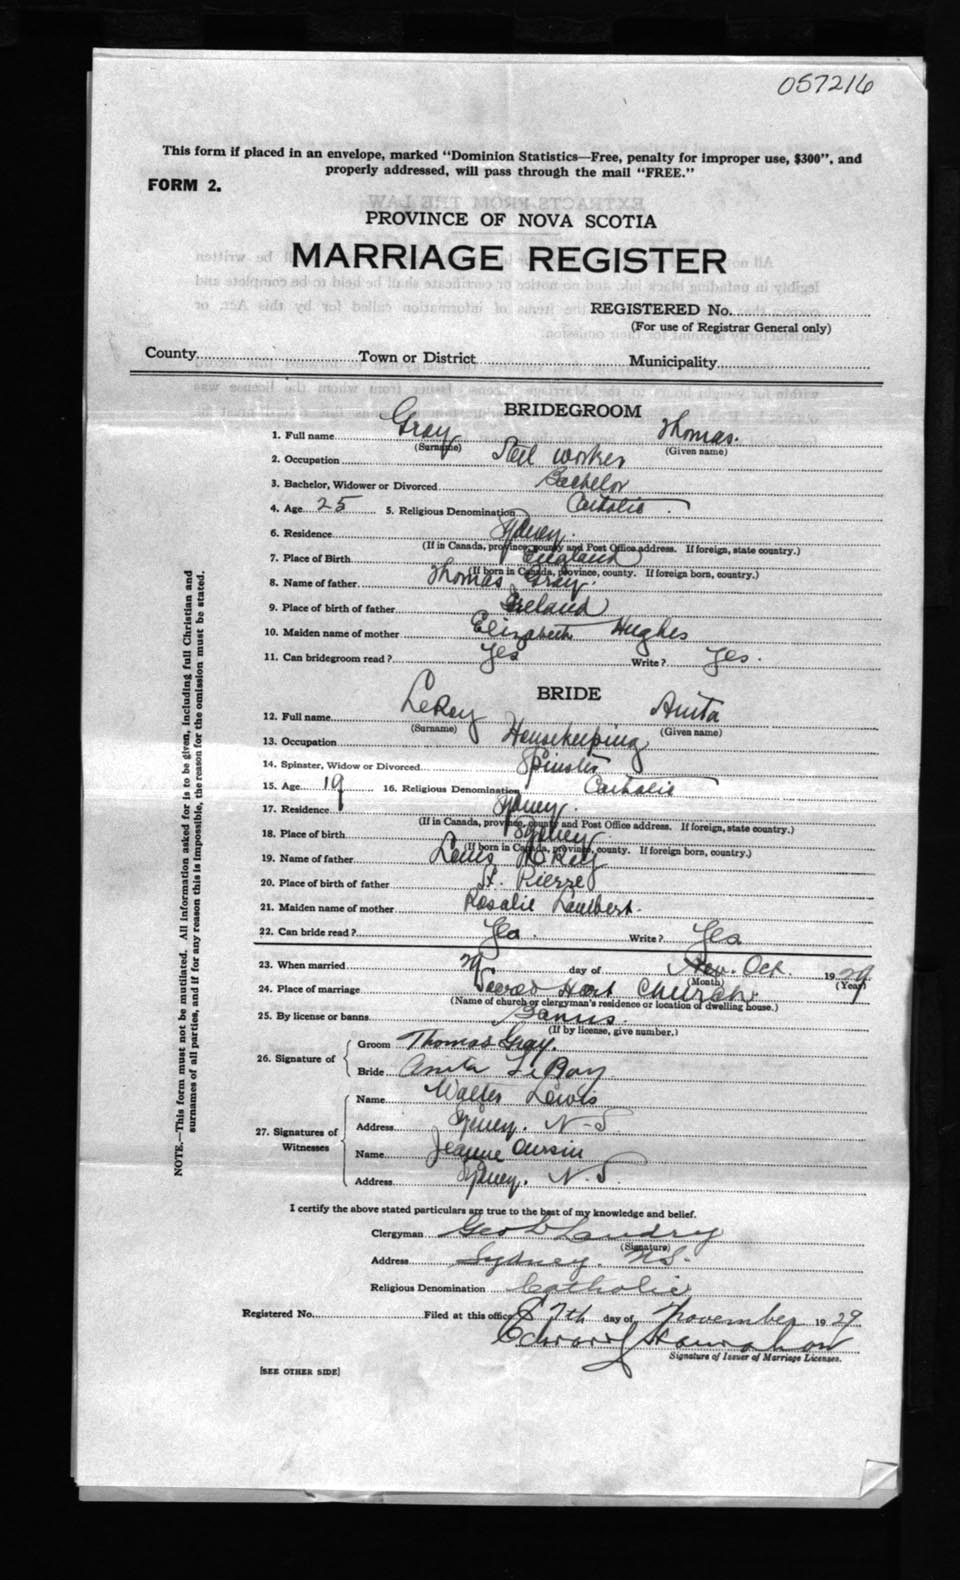 057216
This form if placed in an envelope, marked "Dominion Statistics—Free, penalty for improper use, $300", and
properly addressed, will pass through the mail "FREE."
FORM 2.
PROVINCE OF NOVA SCOTIA
MARRIAGE REGISTER
REGISTERED No.
(For use of Registrar General only)
County Town or District Municipality
BRIDEGROOM
1. Full name Gray Thomas.
(Surname) (Given name)
2. Occupation Steel worker
3. Bachelor, Widower or Divorced Bachelor
4. Age 25 5. Religious Denomination Catholic
6. Residence Sydney.
(If in Canada, province, county and Post Office address. If foreign, state country.)
7. Place of Birth England
(If born in Canada, province, county. If foreign born, country.)
8. Name of father Thomas Gray.
9. Place of birth of father Ireland
10. Maiden name of mother Elizabeth Hughes
11. Can bridegroom read? Yes Write? Yes.
BRIDE
12. Full name LeRoy Anita
(Surname) (Given name)
13. Occupation Housekeeping
14. Spinster, Widow or Divorced Spinster
15. Age 19 16. Religious Denomination Catholic
17. Residence Sydney.
(If in Canada, province, county and Post Office address. If foreign, state country.)
18. Place of birth Sydney
(If born in Canada, province, county. If foreign born, country.)
19. Name of father Louis LeRoy
20. Place of birth of father St. Pierre
21. Maiden name of mother Rosalie Lambert.
22. Can bride read? Yes. Write? Yes
23. When married 29 day of Nov. Oct. 1929
(Month) (Year)
24. Place of marriage Sacred Heart Church
(Name of church or clergyman's residence or location of dwelling house.)
25. By license or banns Banns.
(If by license, give number.)
26. Signature of
Groom Thomas Gray.
Bride Anita LeRoy
27. Signatures of
Witnesses
Name Walter Lewis
Address Sydney. N-S
Name Jeanne
Address Sydney. N.S.
I certify the above stated particulars are true to the best of my knowledge and belief.
Clergyman Geo Landry
(Signature)
Address Sydney. N.S.
Religious Denomination Catholic
Registered No. Filed at this office 7th day of November 1929
Edward Hanrahan
Signature of Issuer of Marriage Licenses.
[SEE OTHER SIDE]
NOTE.—This form must not be mutilated. All information asked for is to be given, including full Christian and
surnames of all parties, and if for any reason this is impossible, the reason for the omission must be stated.